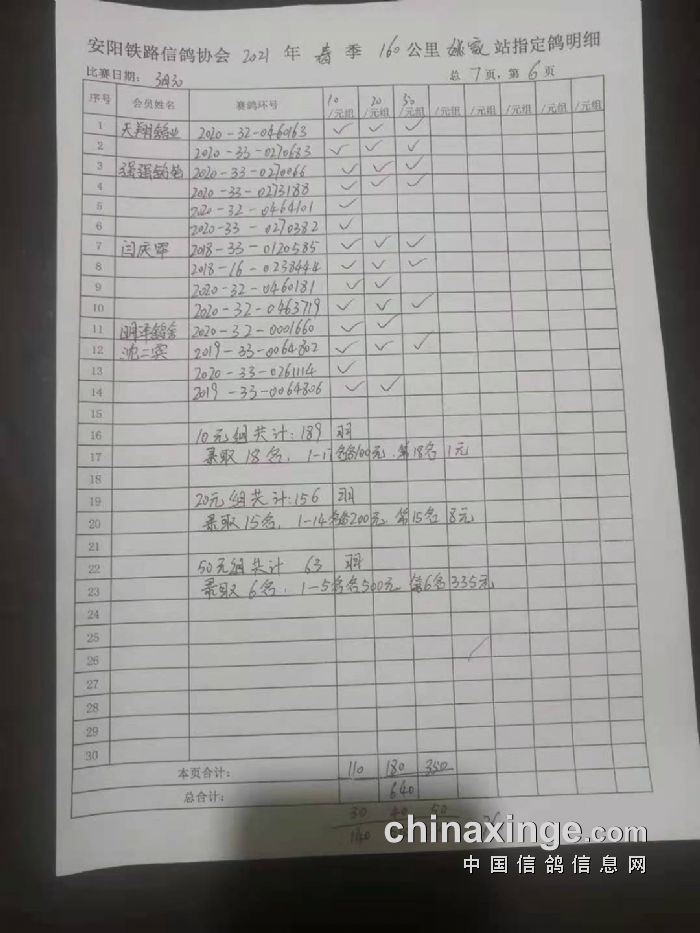 安阳铁路信鸽协会 2021 年 春 季 160 公里 站指定鸽明细
比赛日期： 3月30 总 7 页，第 6 页
序号 会员姓名 赛鸽环号 10/元组 20/元组 50/元组 /元组 /元组 /元组 /元组 /元组
1 天翔鸽业 2020-32-0460163 ✓ ✓ ✓
2 2020-33-0270683 ✓ ✓ ✓
3 强强鸽舍 2020-33-0270066 ✓ ✓ ✓
4 2020-33-0273188 ✓ ✓ ✓
5 2020-32-0464101 ✓
6 2020-33-0270382 ✓
7 闫庆军 2018-33-0120585 ✓ ✓ ✓
8 2018-16-0238444 ✓ ✓ ✓
9 2020-32-0460181 ✓ ✓
10 2020-32-0463719 ✓ ✓ ✓
11 鸽舍 2020-32-0001660 ✓ ✓
12 沈二宾 2019-33-0064802 ✓ ✓ ✓
13 2020-33-0261114 ✓
14 2019-33-0064806 ✓ ✓
15
16 10元组共计：189 羽
17 录取18名，1-17名各100元，第18名1元
18
19 20元组共计：156 羽
20 录取15名，1-14名各200元，第15名8元
21
22 50元组共计 63 羽
23 录取6名，1-5名各500元，第6名335元
24
25
26
27
28
29
30
本页合计： 110 180 350
总合计： 640
30 40 50
140
chinaxinge.com
中国信鸽信息网